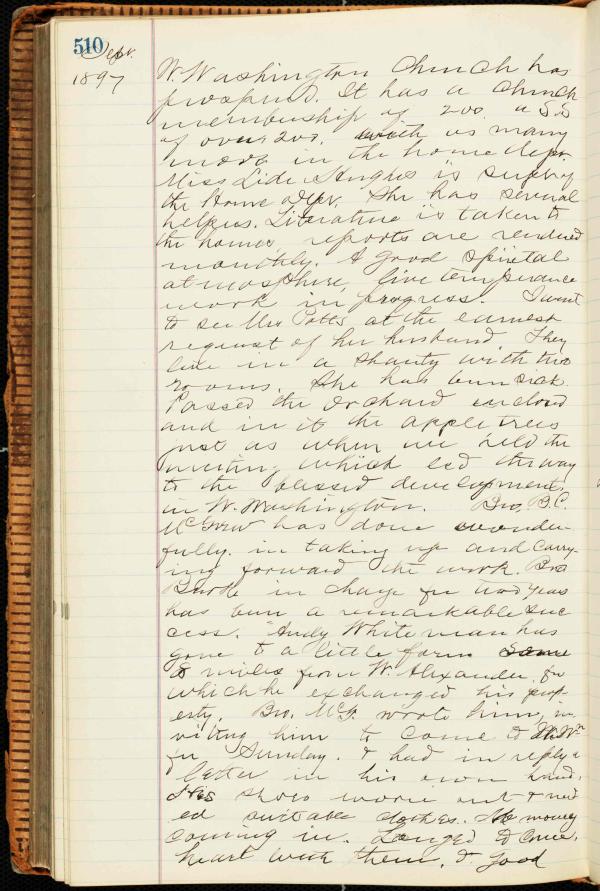 510
Sept.
1897
W. Washington Church has
prospered. It has a church
membership of 200. a S.S
of over 200. with as many
more in the home dept.
Miss Lide Hughes is supt of
the Home Dept. She has several
helpers. Literature is taken to
the homes, reports are rendered
monthly. A good spirital
atmosphire, live temperance
work in progress. I went
to see Mrs Potts at the earnest
request of her husband. They
live in a shanty with two
rooms. She has been sick.
Passed the orchard enclosed
and in it the apple trees
just as when we held the
meeting which led the way
to the blessed development
in W. Washington. Bro, B.C.
McGrew has done wonder-
fully. in taking up and carry-
ing forward the work. Bro
in charge for two years
has been a remarkable suc
cess. Andy Whiteman has
gone to a little farm some
8 miles from W. Alexander, for
which he exchanged his prop-
erty. Bro. McG. wrote him, in-
viting him to come to W. Wn
for Sunday. & had in reply a
letter in his own hand.
His shoes worn out & need
ed suitable clothes. No money
coming in. Longed to come.
heart with them, & good